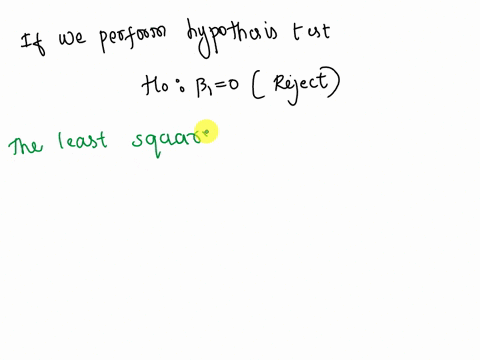 If we perform hypothesis test
H0 : β1=0 (Reject)
The least square